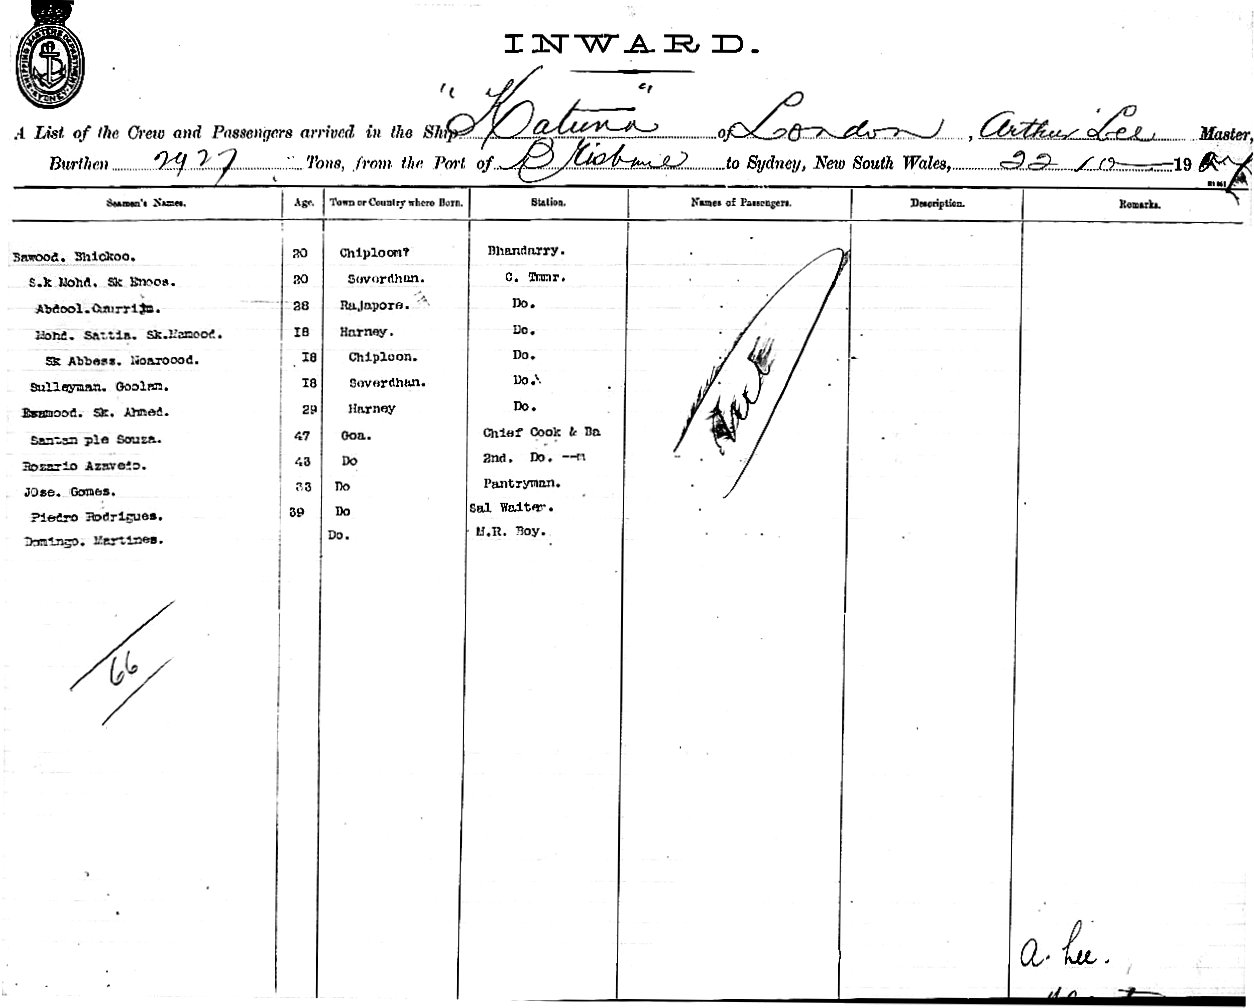 SHIPPING MASTERS DEPARTMENT SYDNEY
INWARD.
A List of the Crew and Passengers arrived in the Ship "Katuna" of London, Arthur Lee Master,
Burthen 2927 Tons, from the Port of Brisbane to Sydney, New South Wales, 22 10 19
Seamen's Names. Age. Town or Country where Born. Station. Names of Passengers. Description. Remarks.
Dawood. Bhickoo. 20 Chiploon? Bhandarry.
S.k Mohd. Sk Enoos. 20 Soverdhun. C. Tmmr.
Abdool. 28 Rajapore. Do.
Mohd. Sattia. Sk.Mamood. 18 Harney. Do.
Sk Abbess. Noaroood. 18 Chiploon. Do.
Sulleyman. Goolam. 18 Soverdhan. Do.
Essmood. Sk. Ahmed. 29 Harney Do.
Santan ple Souza. 47 Goa. Chief Cook & Ba
Rozario Azavedo. 43 Do 2nd. Do. --"
JOse. Gomes. 33 Do Pantryman.
Piedro Rodrigues. 39 Do Sal Waiter.
Domingo. Martines. Do. M.R. Boy.
66
A. Lee.